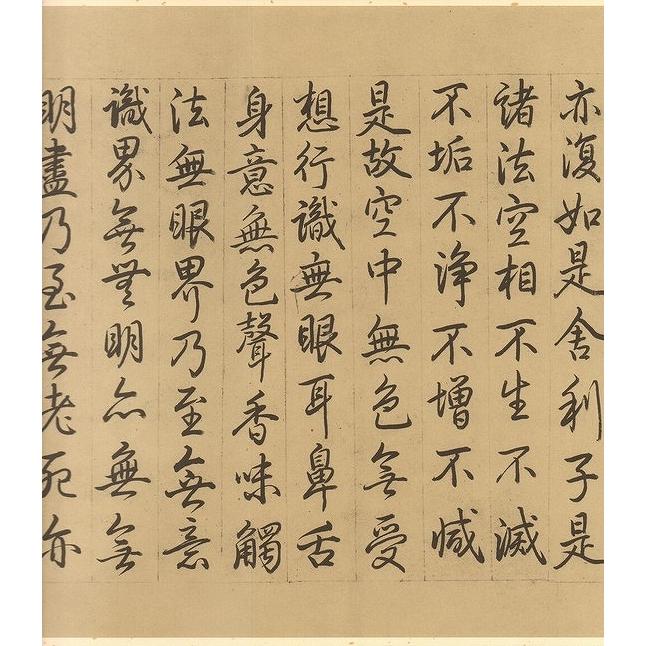 亦復如是舍利子是
諸法空相不生不滅
不垢不淨不增不減
是故空中無色無受
想行識無眼耳鼻舌
身意無色聲香味觸
法無眼界乃至無意
識界無無明亦無無
明盡乃至無老死亦